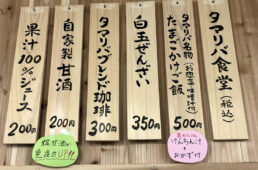 タマリバ食堂(税込)
タマリバ名物(お惣菜・味噌汁付)
たまごかけご飯
500円
けんちん汁
+
おかず付
白玉ぜんざい
350円
タマリバブレンド珈琲
300円
自家製甘酒
200円
免疫力UP!!
果汁100%ジュース
200円